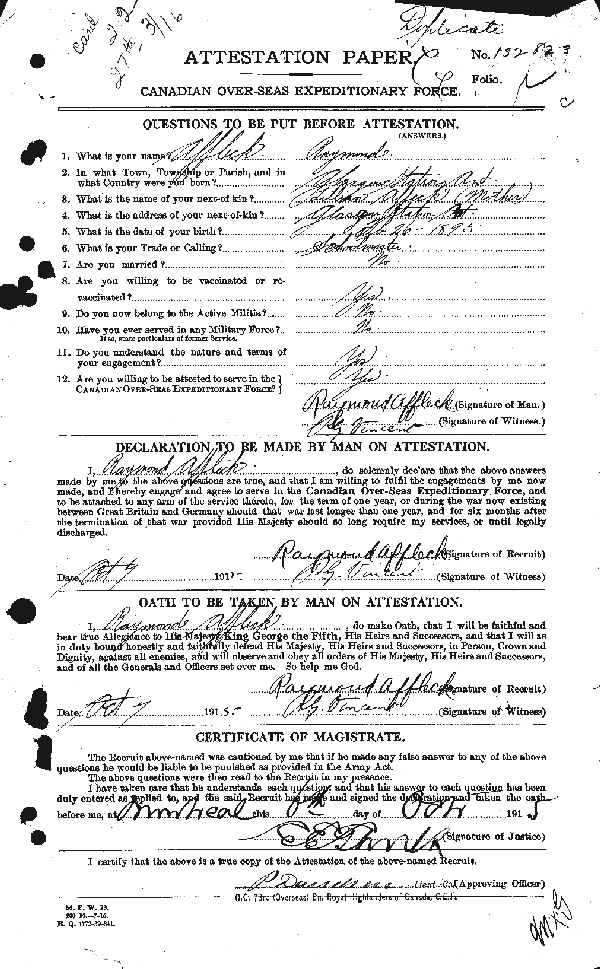 Duplicate
Card
ATTESTATION PAPER.
No. 132823
Folio.
CANADIAN OVER-SEAS EXPEDITIONARY FORCE.
QUESTIONS TO BE PUT BEFORE ATTESTATION.
(ANSWERS.)
1. What is your name? Affleck Raymond
2. In what Town, Township or Parish, and in
what Country were you born? Station Ont
3. What is the name of your next-of-kin? Affleck (Mother)
4. What is the address of your next-of-kin? Station Ont
5. What is the date of your birth? 26 1893
6. What is your Trade or Calling?
7. Are you married? No
8. Are you willing to be vaccinated or re-
vaccinated? Yes
9. Do you now belong to the Active Militia? No
10. Have you ever served in any Military Force? No
If so, state particulars of former Service.
11. Do you understand the nature and terms of
your engagement? Yes
12. Are you willing to be attested to serve in the
CANADIAN OVER-SEAS EXPEDITIONARY FORCE? Yes
Raymond Affleck (Signature of Man.)
Vincent (Signature of Witness.)
DECLARATION TO BE MADE BY MAN ON ATTESTATION.
I, Raymond Affleck, do solemnly declare that the above answers
made by me to the above questions are true, and that I am willing to fulfil the engagements by me now
made, and I hereby engage and agree to serve in the Canadian Over-Seas Expeditionary Force, and
to be attached to any arm of the service therein, for the term of one year, or during the war now existing
between Great Britain and Germany should that war last longer than one year, and for six months after
the termination of that war provided His Majesty should so long require my services, or until legally
discharged.
Raymond Affleck (Signature of Recruit)
Date Oct 7 1915 Vincent (Signature of Witness)
OATH TO BE TAKEN BY MAN ON ATTESTATION.
I, Raymond Affleck, do make Oath, that I will be faithful and
bear true Allegiance to His Majesty King George the Fifth, His Heirs and Successors, and that I will as
in duty bound honestly and faithfully defend His Majesty, His Heirs and Successors, in Person, Crown and
Dignity, against all enemies, and will observe and obey all orders of His Majesty, His Heirs and Successors,
and of all the Generals and Officers set over me. So help me God.
Raymond Affleck (Signature of Recruit)
Date Oct 7 1915. Vincent (Signature of Witness)
CERTIFICATE OF MAGISTRATE.
The Recruit above-named was cautioned by me that if he made any false answer to any of the above
questions he would be liable to be punished as provided in the Army Act.
The above questions were then read to the Recruit in my presence.
I have taken care that he understands each question, and that his answer to each question has been
duly entered as replied to, and the said Recruit has made and signed the declaration and taken the oath
before me, at Montreal this 8th day of Oct 1915
(Signature of Justice)
I certify that the above is a true copy of the Attestation of the above-named Recruit.
Lieut-Col (Approving Officer)
O.C. 73rd (Overseas) Bn. Royal Highlanders of Canada, C.E.F.
M. F. W. 23.
200 M.—7-15.
H. Q. 1772-39-841.